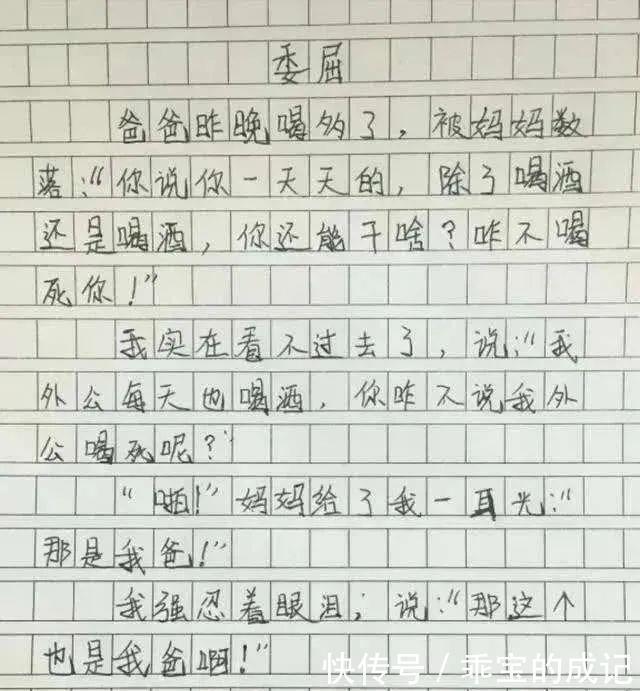 委屈
爸爸昨晚喝多了，被妈妈数
落:“你说你一天天的，除了喝酒
还是喝酒，你还能干啥？咋不喝
死你！”
我实在看不过去了，说:“我
外公每天也喝酒，你咋不说我外
公喝死呢？”
“啪！”妈妈给了我一耳光:“
那是我爸！”
我强忍着眼泪；说:“那这个
也是我爸啊！”
快传号 / 乖宝的成记